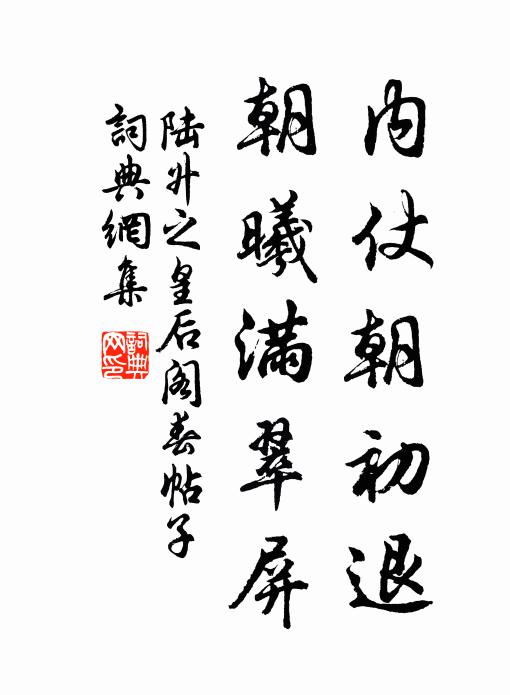 内仗朝初退
朝曦滿翠屏
陆升之皇后阁春帖子
詞典網集
詞典網印